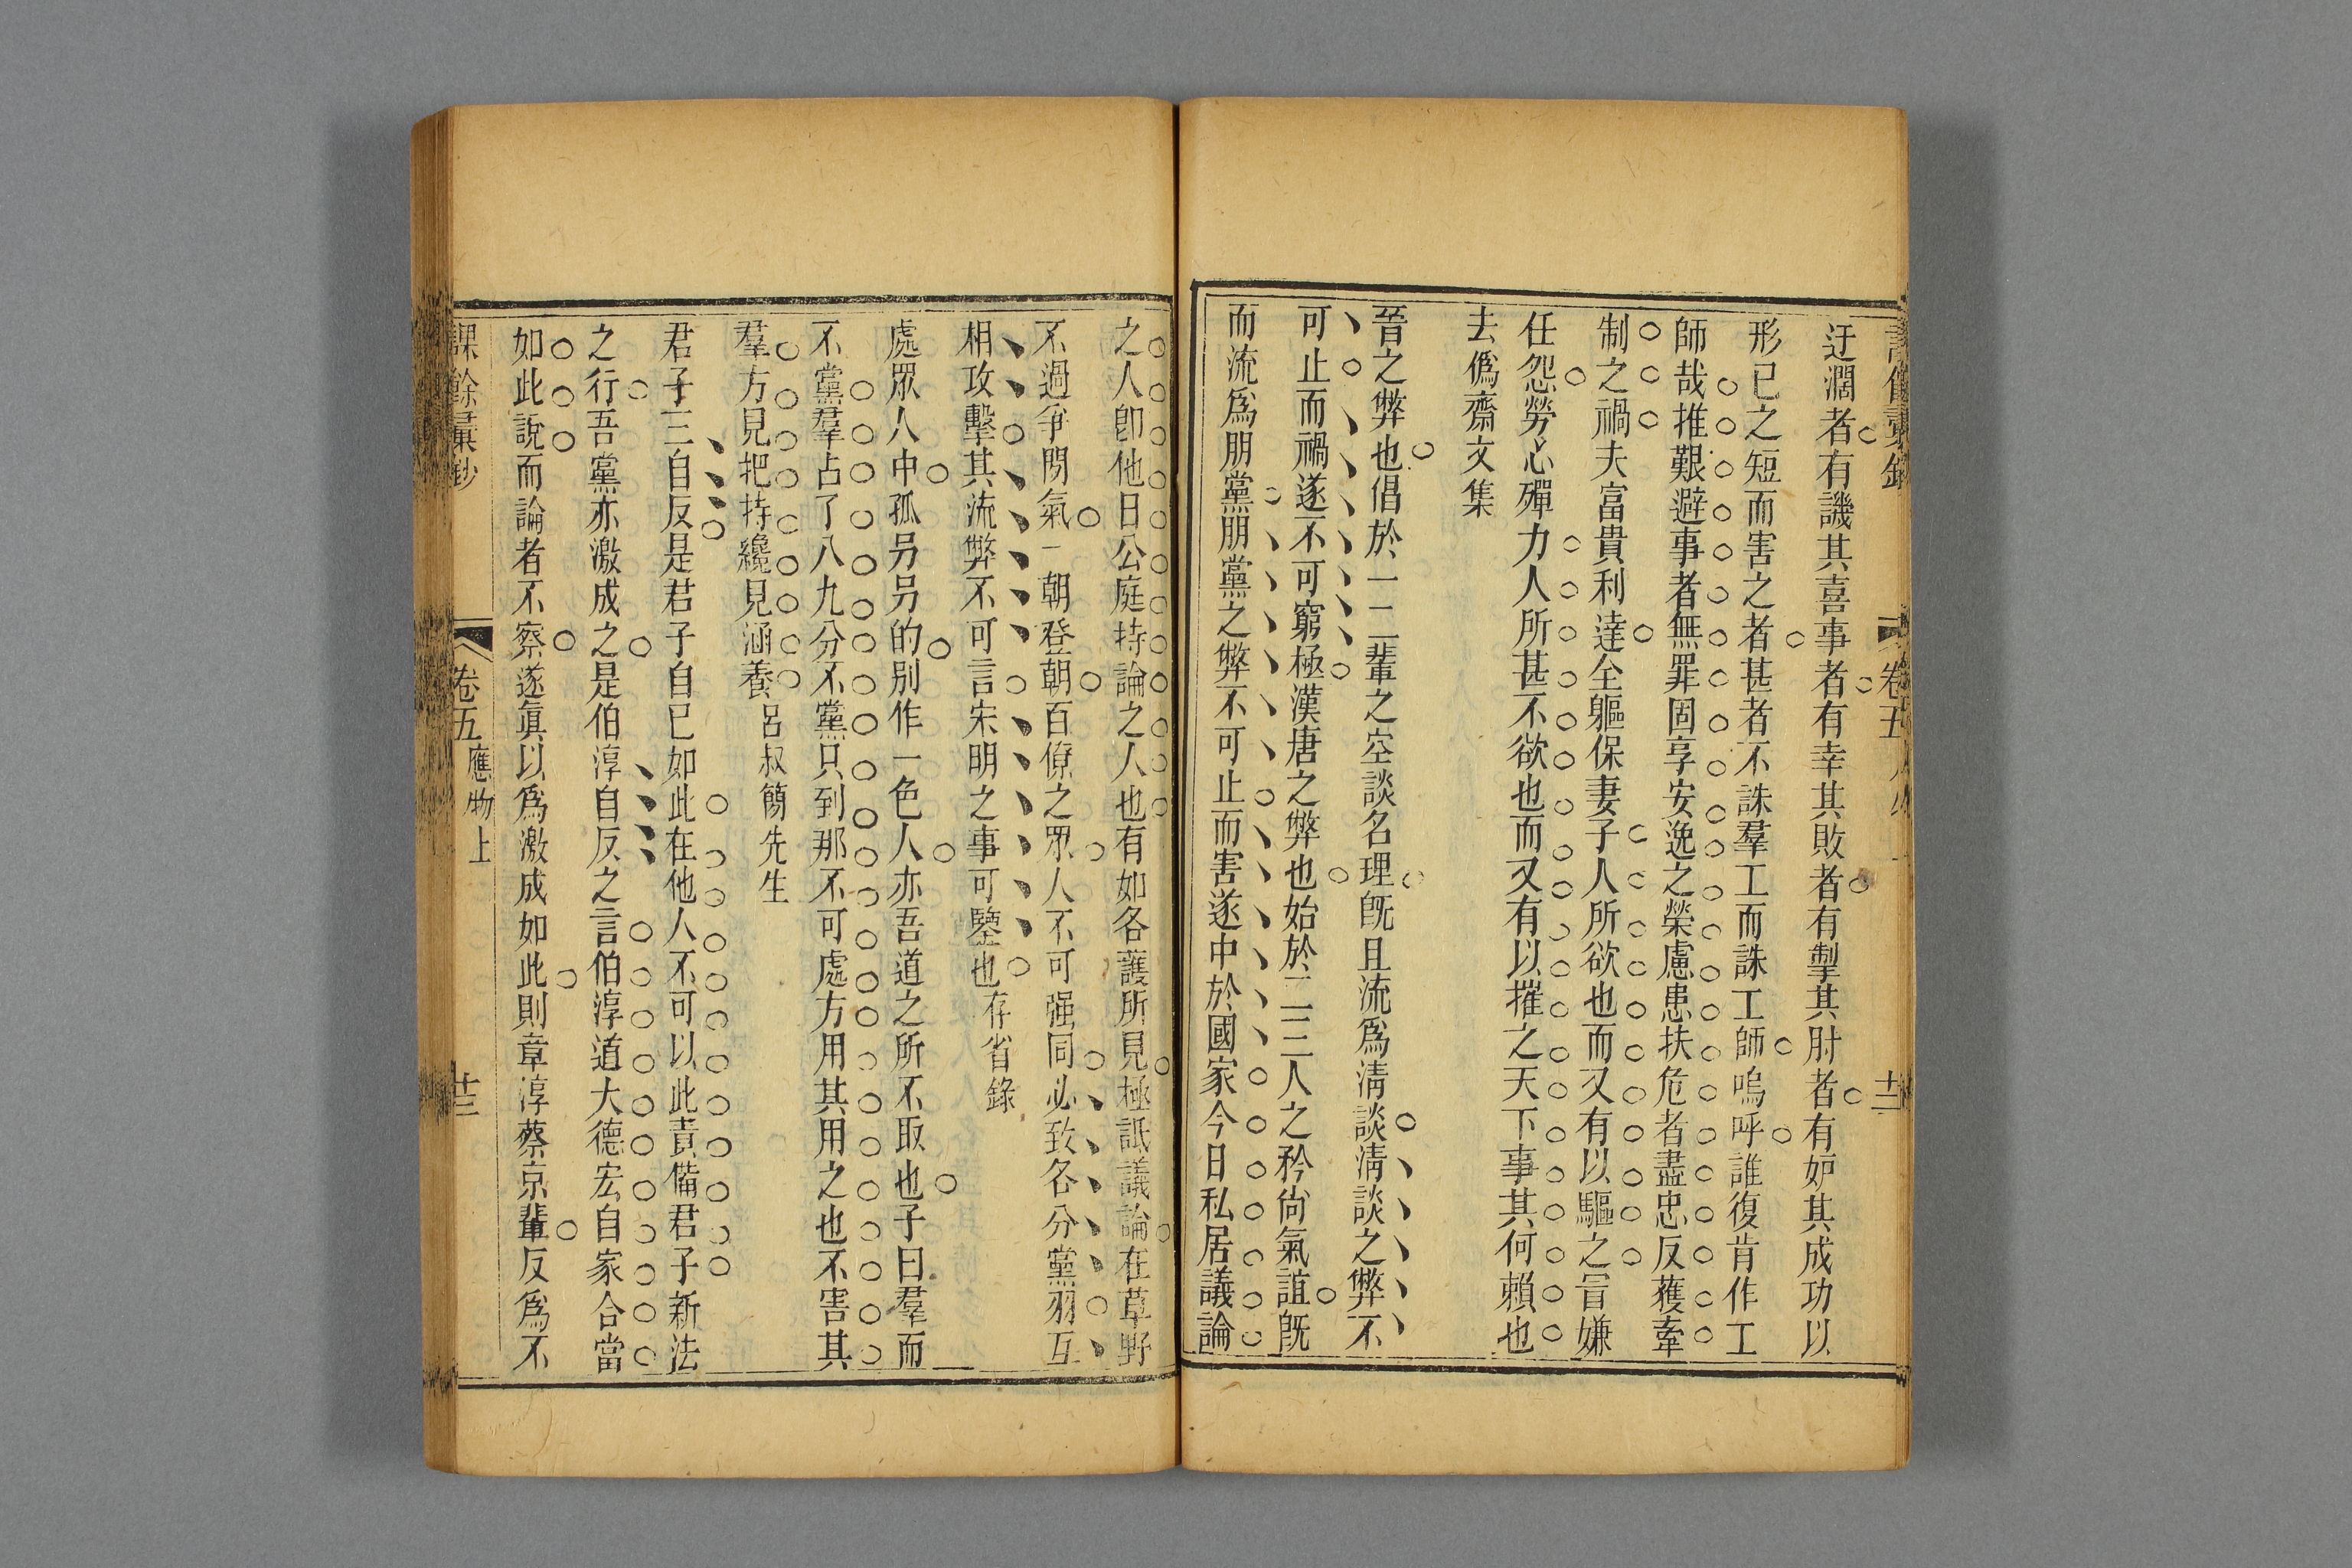 卷五
迂濶者有譏其喜事者有幸其敗者有掣其肘者有妒其成功以
形已之短而害之者甚者不誅羣工而誅工師嗚呼誰復肯作工
師哉推艱避事者無罪固享安逸之榮慮患扶危者盡忠反蒦辜
制之禍夫富貴利達全軀保妻子人所欲也而又有以驅之冒嫌
任怨勞心殫力人所甚不欲也而又有以摧之天下事其何賴也
去僞齋文集
晉之弊也倡於一二輩之空談名理旣且流爲淸談淸談之弊不
可止而禍遂不可窮極漢唐之弊也始於二三人之矜尙氣誼旣
而流爲朋黨朋黨之弊不可止而害遂中於國家今日私居議論
之人卽他日公庭持論之人也有如各護所見極詆議論在草野
不過爭閒氣一朝登朝百僚之眾人不可强同必致各分黨羽互
相攻擊其流弊不可言宋明之事可鑒也存省錄
處眾人中孤另另的別作一色人亦吾道之所不取也子曰羣而
不黨羣占了八九分不黨只到那不可處方用其用之也不害其
羣方見把持纔見涵養呂叔簡先生
君子三自反是君子自已如此在他人不可以此責備君子新法
之行吾黨亦激成之是伯淳自反之言伯淳道大德宏自家合當
如此說而論者不察遂眞以爲激成如此則章淳蔡京輩反爲不
課餘彙鈔
卷五應物上
十三